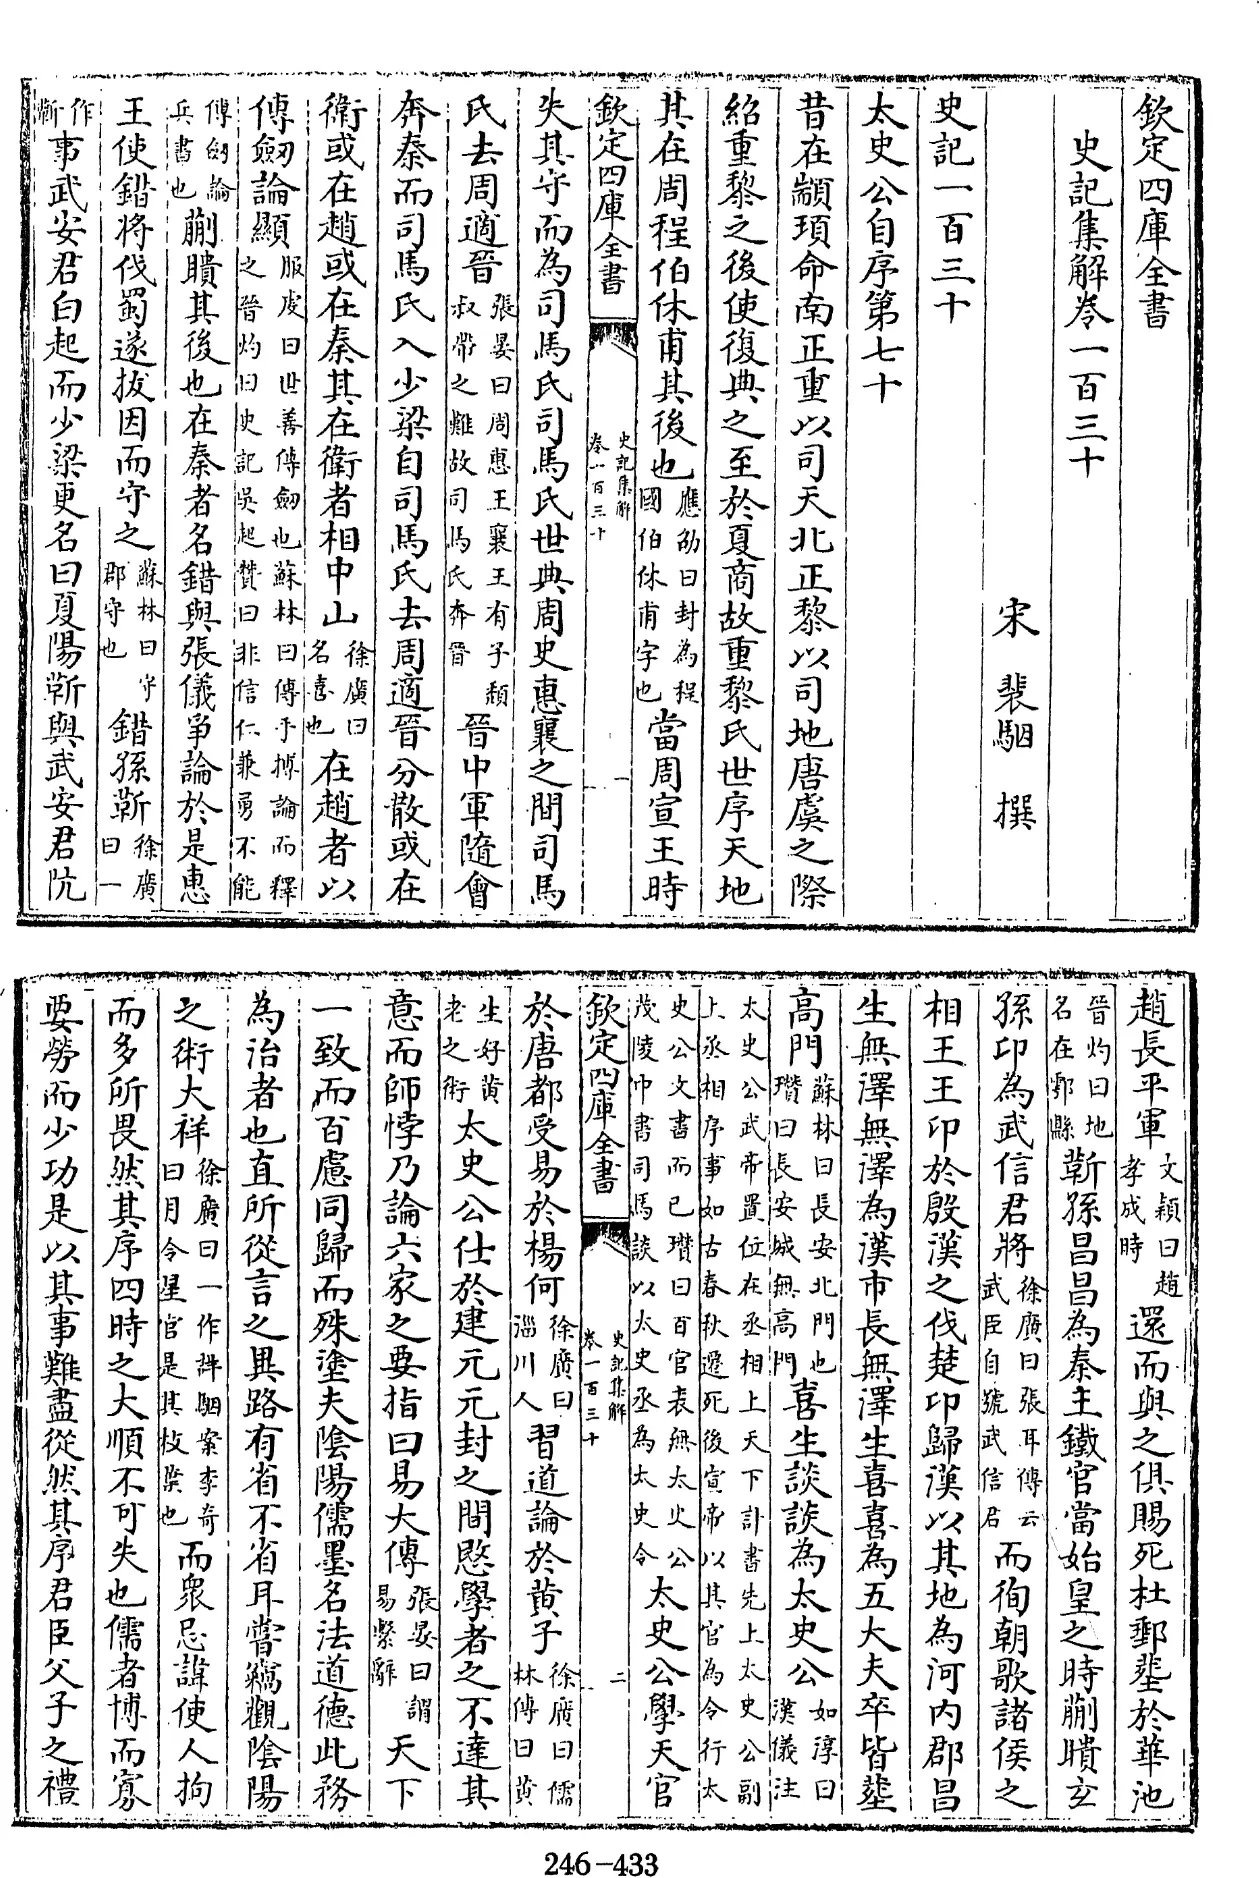 欽定四庫全書
史記集解卷一百三十
宋 裴駰 撰
史記一百三十
太史公自序第七十
昔在顓頊命南正重以司天北正黎以司地唐虞之際
紹重黎之後使復典之至於夏商故重黎氏世序天地
其在周程伯休甫其後也應劭曰封為程國伯休甫字也當周宣王時
欽定四庫全書 史記集解卷一百三十 一
失其守而為司馬氏司馬氏世典周史惠襄之間司馬
氏去周適晉張晏曰周惠王襄王有子頽叔帶之難故司馬氏奔晉晉中軍隨會
奔秦而司馬氏入少梁自司馬氏去周適晉分散或在
衛或在趙或在秦其在衛者相中山徐廣曰名喜也在趙者以
傳劒論顯服虔曰世善傳劒也蘇林曰傳手搏論而釋之晉灼曰史記吳起贊曰非信仁兼勇不能
傳劒論兵書也蒯聵其後也在秦者名錯與張儀爭論於是惠
王使錯將伐蜀遂拔因而守之蘇林曰守郡守也錯孫靳徐廣曰一
作事武安君白起而少梁更名曰夏陽靳與武安君阬
趙長平軍文穎曰趙孝成時還而與之俱賜死杜郵塟於華池
晉灼曰地名在鄠縣靳孫昌昌為秦主鐵官當始皇之時蒯聵玄
孫卬為武信君將徐廣曰張耳傳云武臣自號武信君而徇朝歌諸侯之
相王王卬於殷漢之伐楚卬歸漢以其地為河內郡昌
生無澤無澤為漢市長無澤生喜喜為五大夫卒皆塟
高門蘇林曰長安北門也瓚曰長安城無高門喜生談談為太史公如淳曰漢儀注
太史公武帝置位在丞相上天下計書先上太史公副上丞相序事如古春秋遷死後宣帝以其官為令行太
史公文書而已瓚曰百官表無太史公茂陵中書司馬談以太史丞為太史令太史公學天官
欽定四庫全書 史記集解卷一百三十 二
於唐都受易於楊何徐廣曰淄川人習道論於黄子徐廣曰儒林傳曰黄
生好黄老之術太史公仕於建元元封之間愍學者之不達其
意而師悖乃論六家之要指曰易大傳張晏曰謂易繫辭天下
一致而百慮同歸而殊塗夫陰陽儒墨名法道德此務
為治者也直所從言之異路有省不省耳嘗竊觀陰陽
之術大祥徐廣曰一作詳駰案李奇曰月令星官是其枝葉也而衆忌諱使人拘
而多所畏然其序四時之大順不可失也儒者博而寡
要勞而少功是以其事難盡從然其序君臣父子之禮
246-433